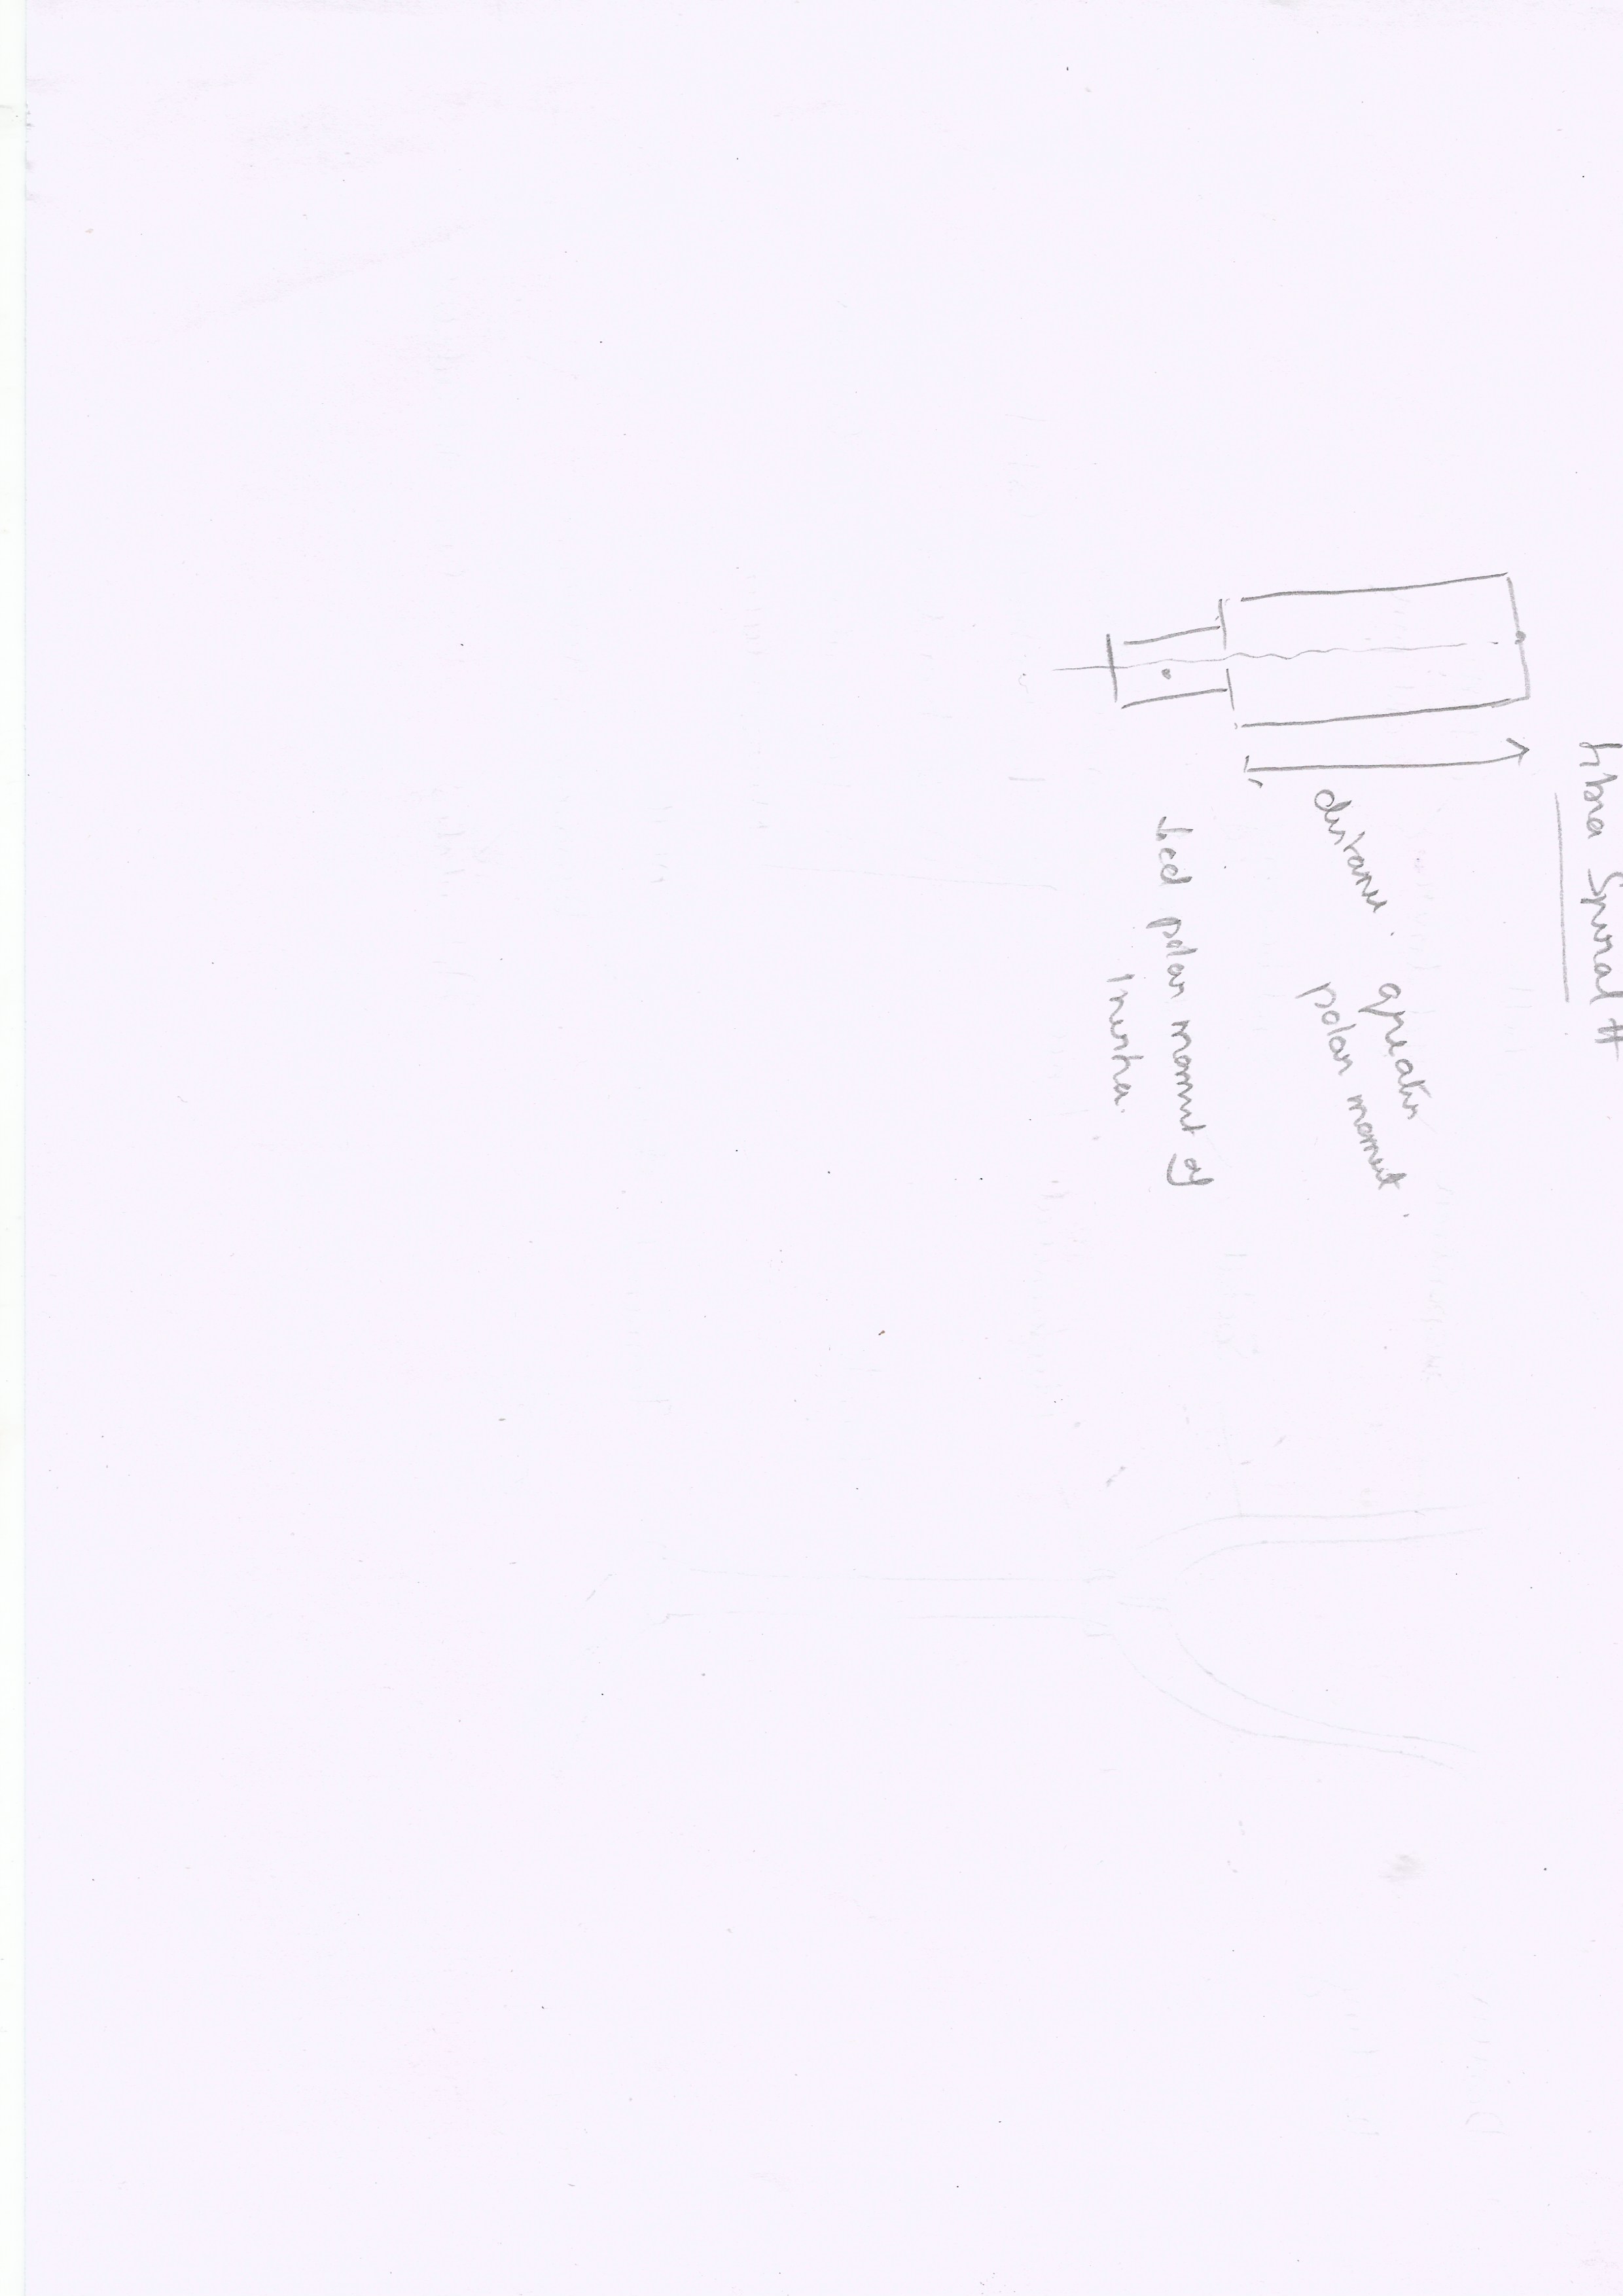 tibia Spiral #
distance. greater
polar moment.
↓ced polar moment of
Inertia.